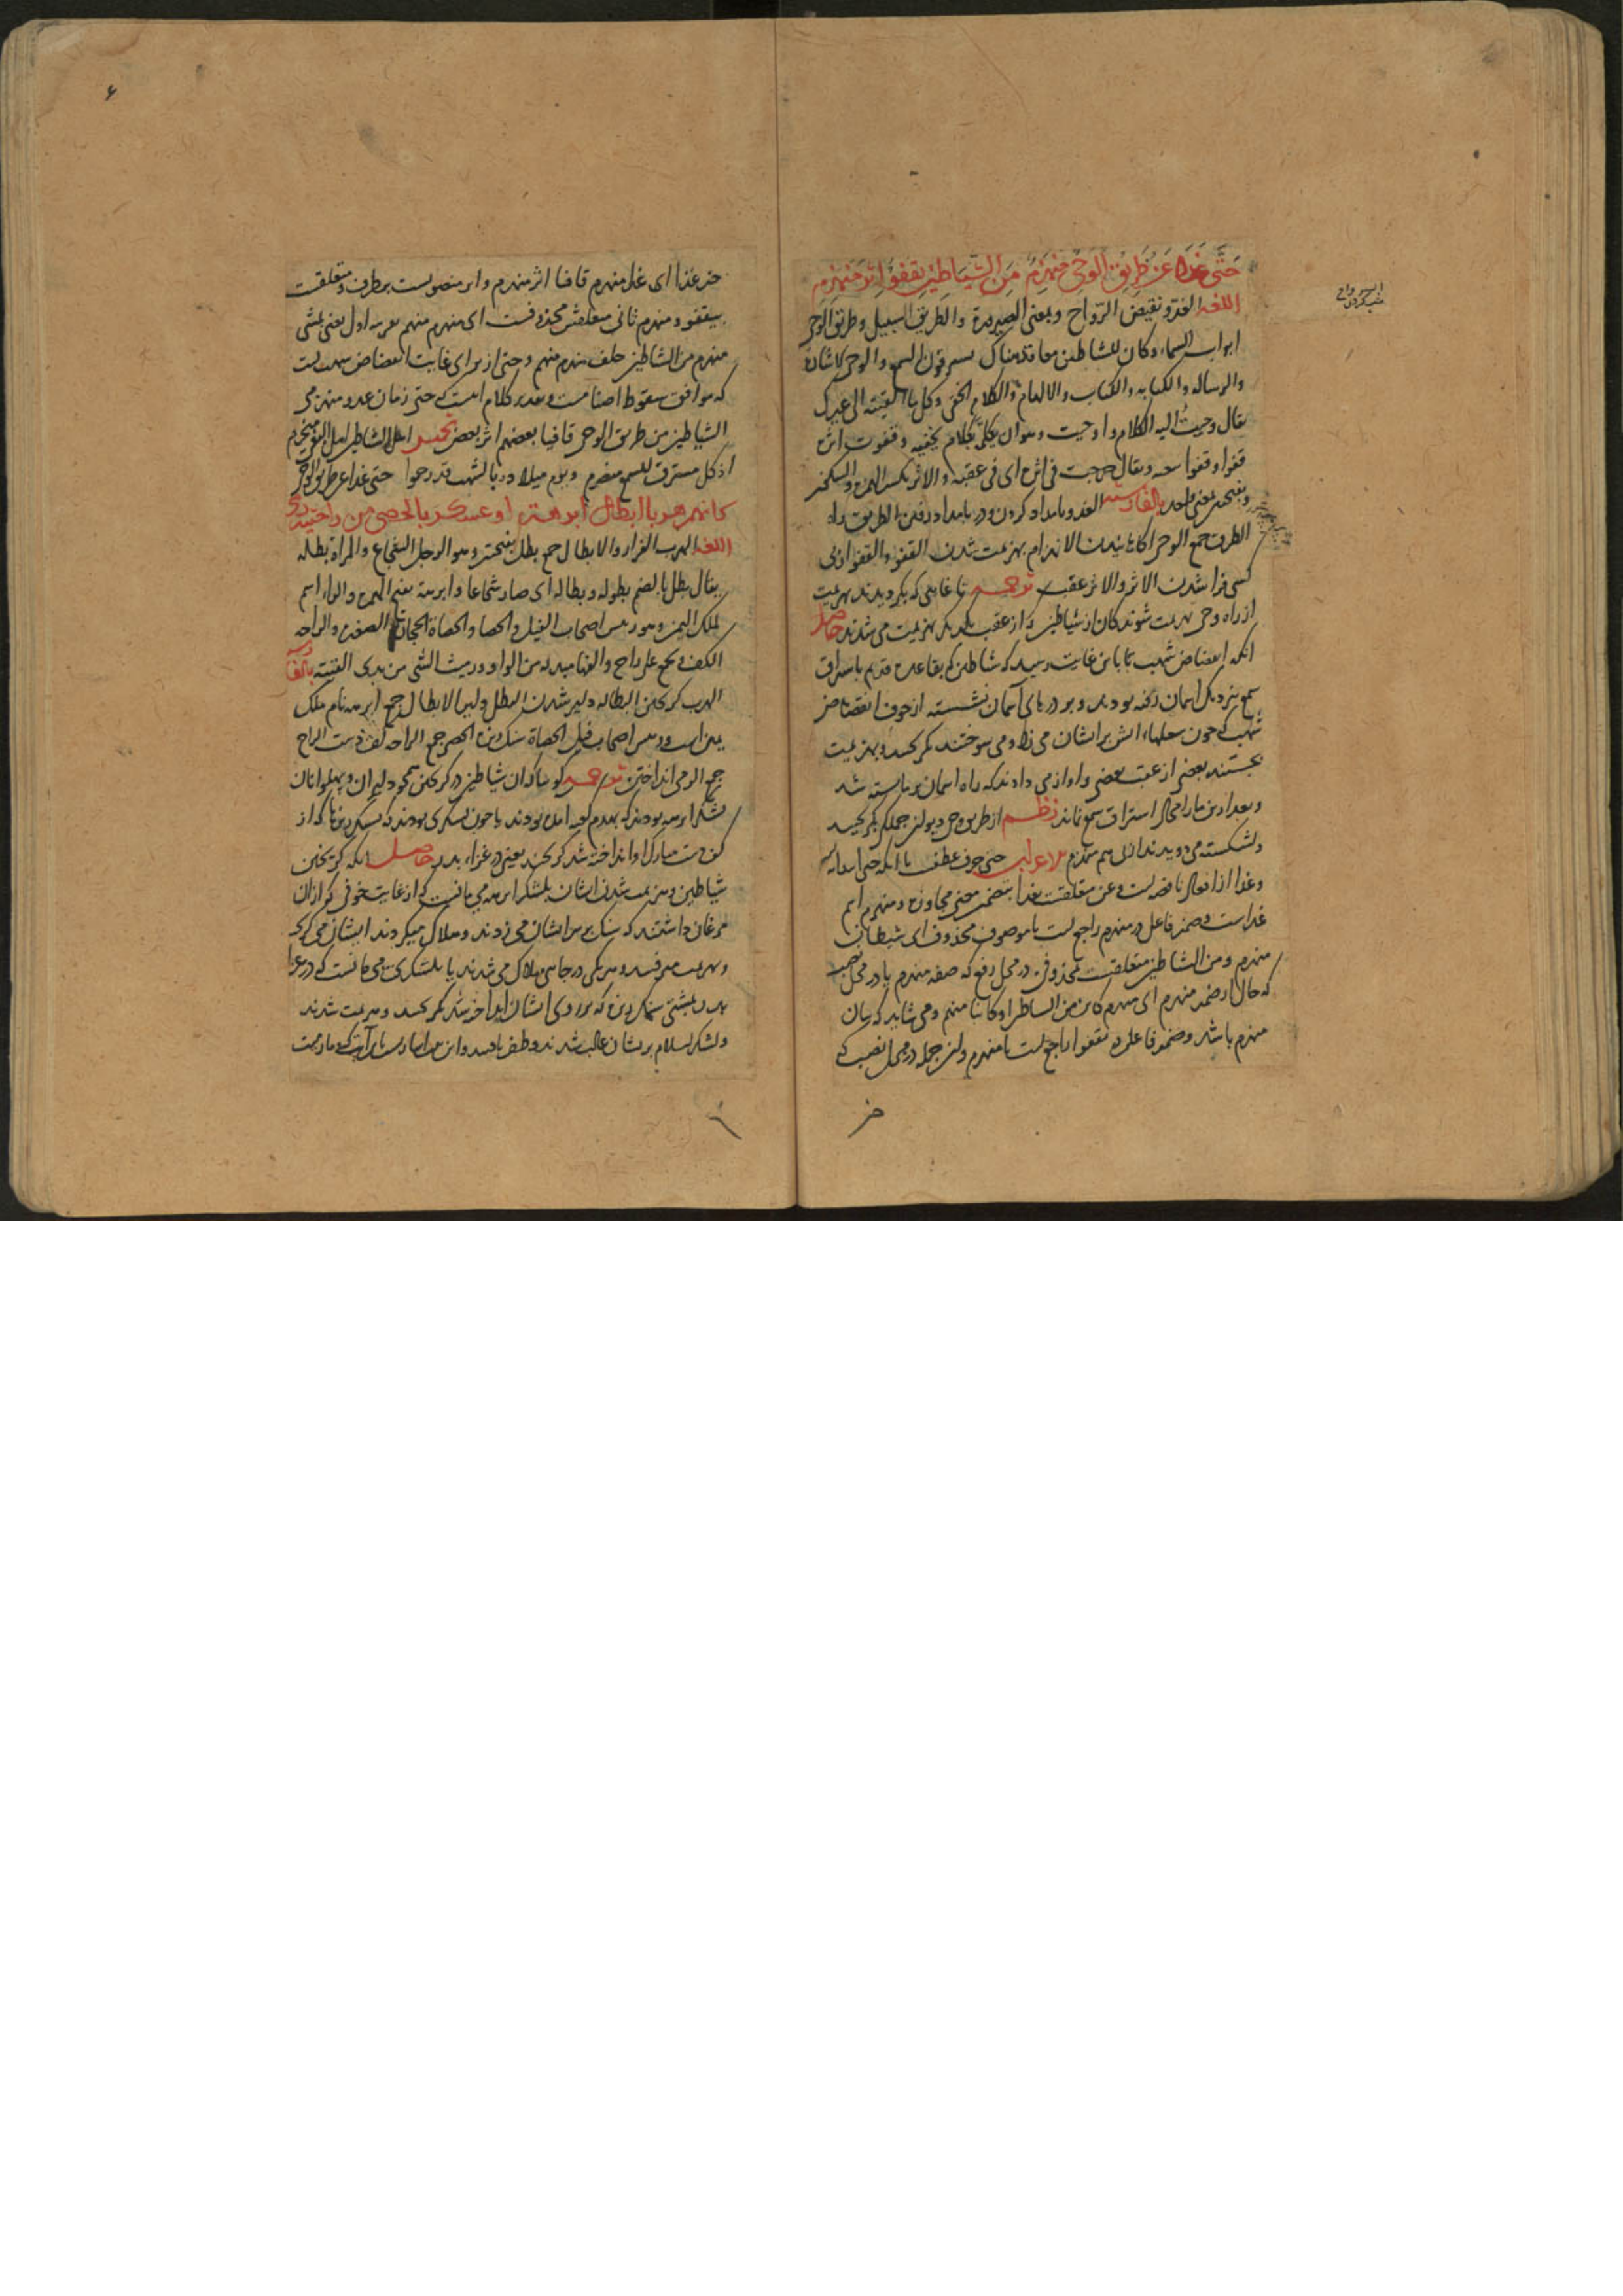 حَتّى غَدا عَنْ طَرِيْقِ الْوَحْيِ مُنْهَزِمٌ مِنَ الشَّيَاطِيْنِ يَقْفُوْا اِثْرَ مُنْهَزِمِ
اللغة الغدو نقيض الرّواح وبمعنى الصيرورة والطريق السبيل وطريق الوحى
ابواب السماء وكان للشياطين مقاعد هناك يسترقون السمع والوحى الاشارة
والرساله والكتابه والكتاب والالهام والكلام الخفى وكل ما القيته الى غيرك
يقال وحيتُ اليه الكلام واوحيت وهو ان يكلمه بكلام يخفيه وقفوت اثره
قفوا وقفوا ويقال خرجت فى اثره اى فى عقبه والاثر بكسر الهمزه والسكون
وبفتحتين بمعنى واحد بالفارسيه الغدو بامداد كردن ودر بامداد رفتن الطريق راه
الطرق جمع الوحى الانهزام بهزيمت شدن القفو والقفو از پى
كسى فرا شدن الاثر والاثر عقب ترجمه تا غايتى كه بكرديدند بهزيمت
از راه وحى هزيمت شوندكان از شياطين كه از عقب يكديكر بهزيمت مى شدند حاصل
انكه انقضاض شهب تا باين غايت رسيد كه شياطين كه بقاعده قديم باستراق
سمع بنزديك اسمان رفته بودند وبر درهاى آسمان نشسته از خوف انقضاض
شهب كه چون شعلهاء اتش بر ايشان مى زد ومى سوختند بكريختند وبهزيمت
بجستند بعضى از عقب بعضى واواز مى دادند كه راه اسمان بر ما بسته شد
وبعد ازين ما را مجال استراق سمع نماند نظم از طريق وحى ديوان جمله بكريختند
دلشكسته مى دويدند از پى هم منهزم الاعراب حتى حرف عطف يا انكه حتى ابتدائيه
وغدا از افعال ناقصه است وعن متعلقست بغدا بتضمين معنى مجاوزه ومنهزم اسم
غداست وضمير فاعل در منهزم راجع است با موصوف محذوف اى شيطان
منهزم ومن الشياطين متعلقست بمحذوفى در محل رفع كه صفه منهزم يا در محل نصب
كه حال از ضمير منهزم اى منهزم كائن من الشياطين او كائنا منهم ومى شايد كه بيان
منهزم باشد وضمير فاعل در يقفوا راجع است با منهزم واين جمله در محل نصب كه
خبر
خبر غدا اى غدا منهزم قافيا اثر منهزم واثر منصوبست بظرف ومتعلقست
بيقفو ومنهزم ثانى متعلقش محذوفست اى منهزم منهم بقرينه اول يعنى يمشى
منهزم من الشياطين خلف منهزم منهم وحتى از براى غايت انقضاض شهب است
كه موافق سقوط اصنامست وتقدير كلام اينست كه حتى زمان غدو منهزمى
الشياطين من طريق الوحى قافيا بعضهم اثر بعض تخميس
اذ كل مسترق للسمع منصرم ويوم ميلاده بالشهب قد رجموا حتى غدا عن طريق الوحى
كانهم هربا ابطال ابرهة او عسكر بالحصى من راحتيه رمى
اللغة الهرب الفرار والابطال جمع بطل بفتحتين وهو الرجل الشجاع والمراة بطله
يقال بطل بالضم بطولة وبطاله اى صار شجاعا وابرهة بفتح الهمزه والراء اسم
لملك اليمن وهو رئيس اصحاب الفيل والحصا والحصاة الحجارة الصغيره والراحه
الكف ويجمع على راح والفها مبدله من الواو ورميت الشئ من يدى القيته بالفارسيه
الهرب كريختن البطاله دلير شدن البطل دلير الابطال جمع ابرهه نام ملك
يمن است ورئيس اصحاب فيل الحصاة سنك ريزه الحصى جمع الراحه كف دست الراح
جمع الرمى انداختن ترجمه كوييا كه ان شياطين در كريختن همچو دليران وپهلوانان
لشكر ابرهه بودند كه بهدم كعبه امده بودند يا چون لشكرى بودند كه بسنك ريزها كه از
كف دست مبارك او انداخته شد كريختند يعنى در غزاء بدر حاصل انكه كريختن
شياطين وهزيمت شدن ايشان بلشكر ابرهه مى مانست كه از غايت خوفى كه از ان
مرغان داشتند كه سنك بر سر ايشان مى زدند وهلاك ميكردند ايشان مى كريختند
وبهزيمت مى رفتند وهر يكى در جايى هلاك مى شدند يا بلشكرى مى مانست كه در غزاء
بدر بمشتى سنك ريزه كه بر روى ايشان انداخته شد بكريختند وهزيمت شدند
ولشكر اسلام بريشان غالب شدند وظفر يافتند واين اشارت با آيت كه وما رميت